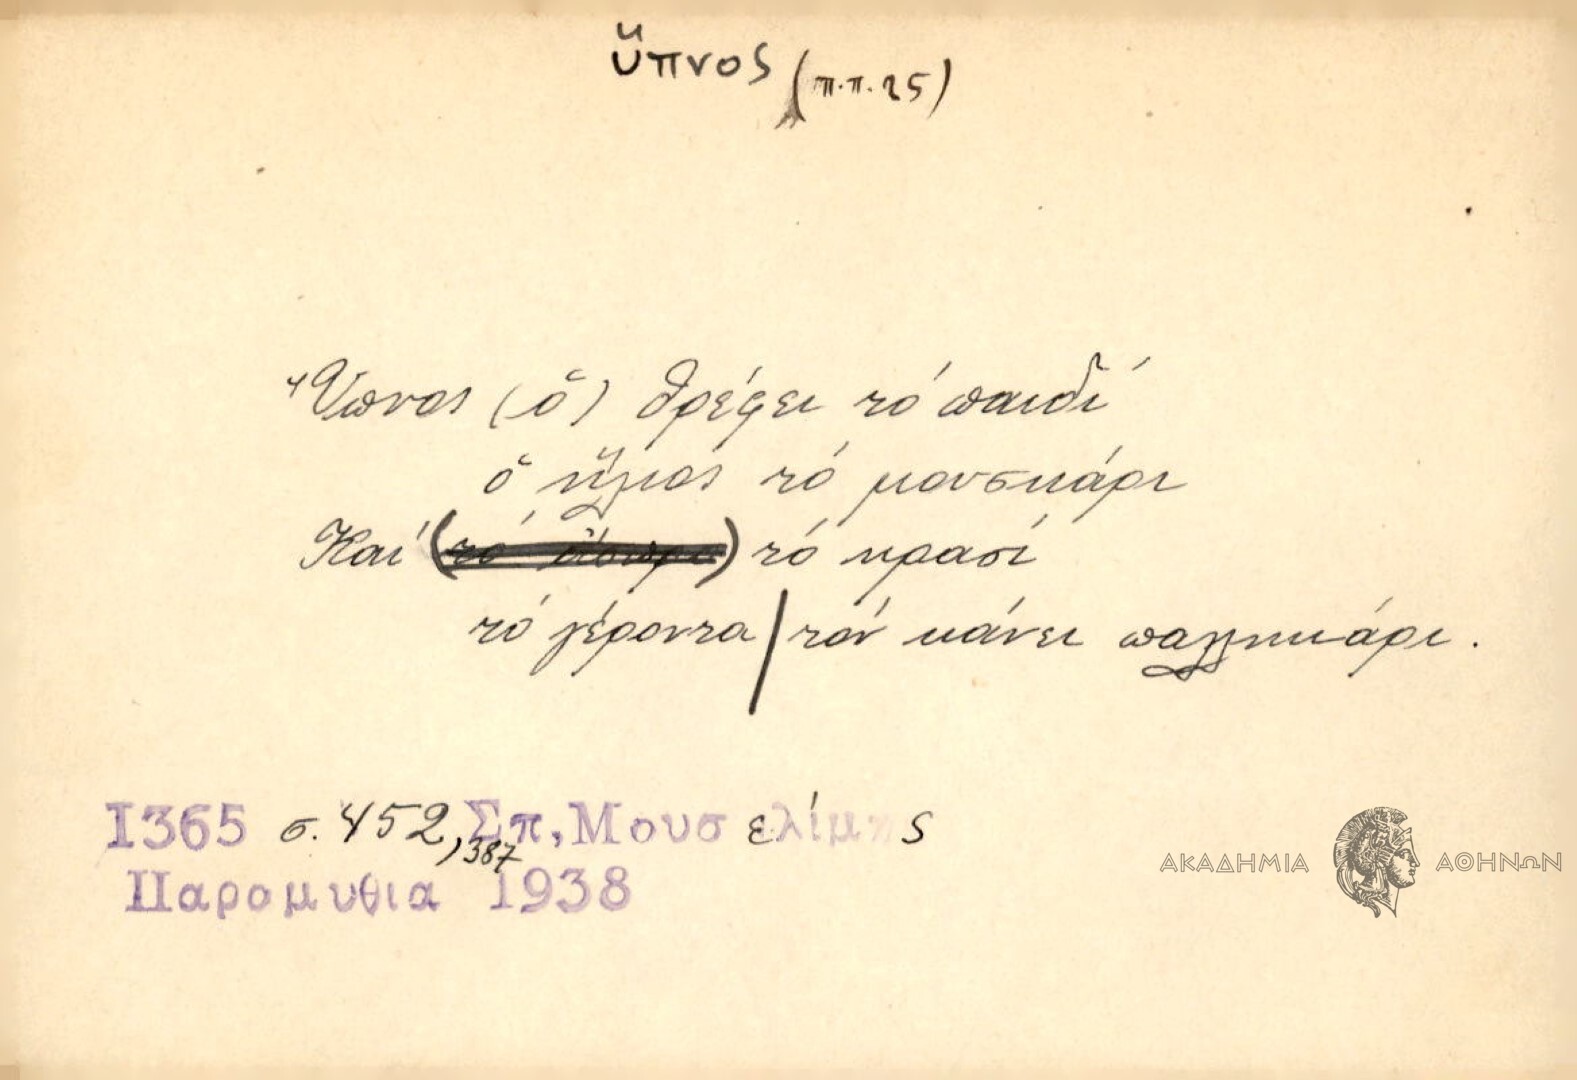 ὕπνος (π.π. 25)
Ὕπνος (ὁ) θρέφει τό παιδί
ὁ ἥλιος τό μουσκάρι
Καί τό κρασί
τό γέροντα / τόν κάνει παλληκάρι.
1365 σ. 452, 387 Σπ, Μουσελίμης
Παραμυθια 1938
ΑΚΑΔΗΜΙΑ ΑΘΗΝΩΝ